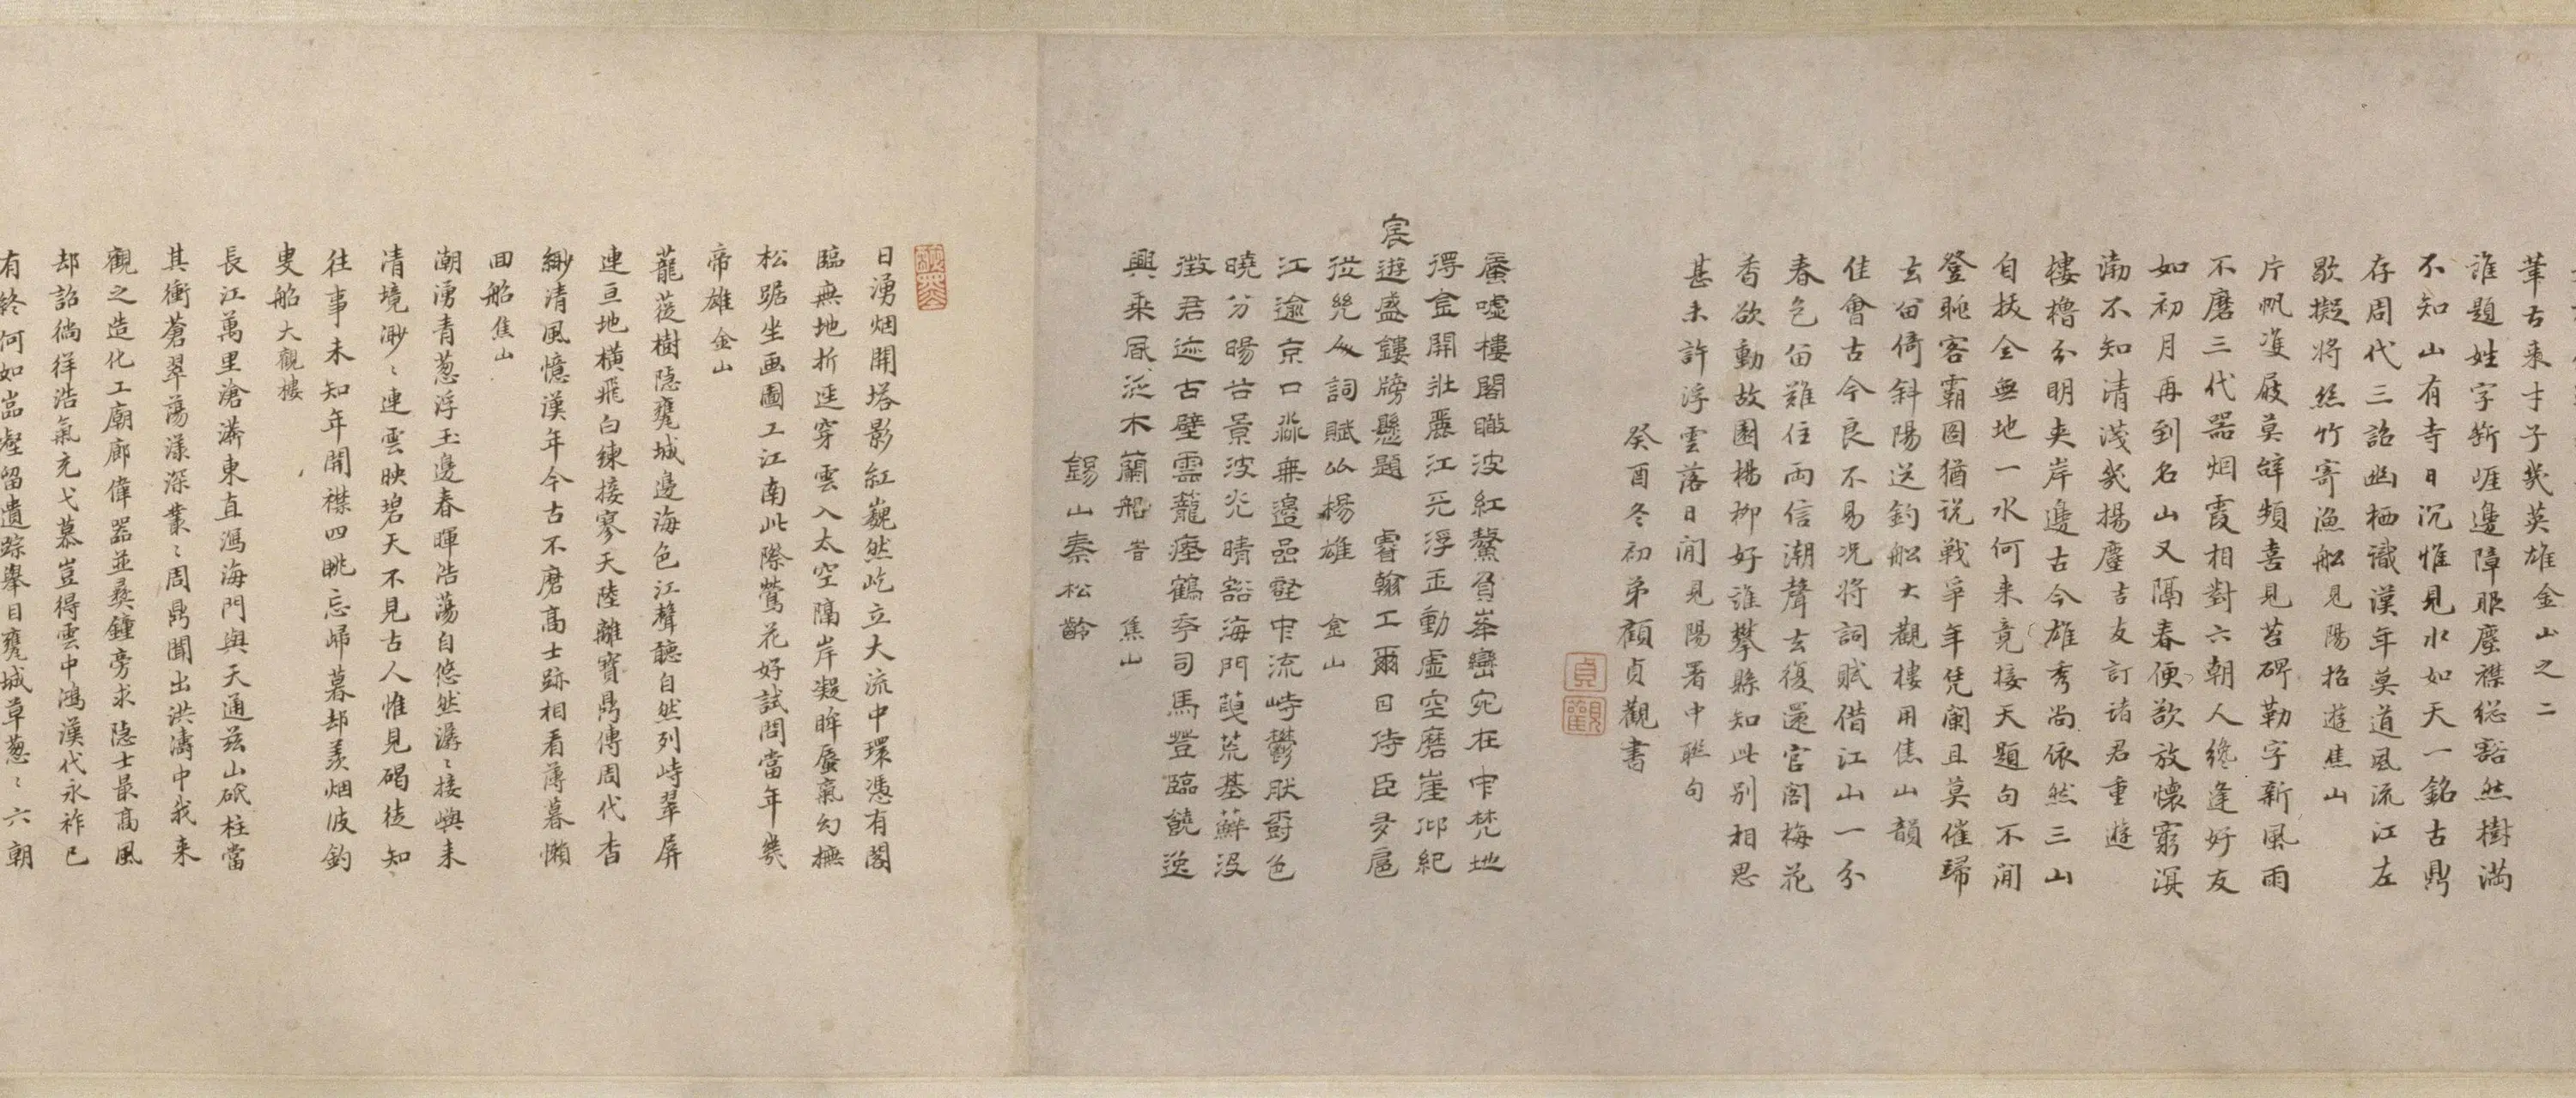 華古來才子幾英雄金山之二
誰題姓字斬崕邊障眼塵襟総豁然樹満
不知山有寺日沉惟見水如天一銘古鼎
存周代三詔幽栖識漢年莫道風流江左
歇擬將絲竹寄漁船見陽招遊焦山
片帆雙屐莫辞頻喜見苔碑勒字新風雨
不磨三代器烟霞相對六朝人纔逢好友
如初月再到名山又隔春便欲放懷窮溟
渤不知清淺幾揚塵吉友訂诸君重遊
樓櫓分明夹岸邊古今雄秀尚依然三山
自扶全無地一水何来竟接天題句不闻
登眺客霸圖猶说戦争年凭闌且莫催歸
去留倚斜陽送釣船大觀樓用焦山韻
佳會古今良不易况將詞賦借江山一分
春色留難住兩信潮聲去復還官阁梅花
香欲動故園楊柳好誰攀縣知此别相思
甚未許浮雲落日间見陽署中聮句
癸酉冬初弟顧貞觀書
貞觀
蜃嘘樓閣瞰波紅鰲負峯巒宛在中梵地
浔金開壯麗江天浮玉動虚空磨崖邺紀
宸遊盛鏤牓懸題睿翰工爾日侍臣多扈
從幾人詞賦似楊雄金山
江逾京口淼無邊嵒壑中流峙鬱肰霽色
曉分暘谷景波光晴豁海門煙荒基蘚没
徴君迹古壁雲蘢瘞鶴本司馬登臨饒逸
興乘風泛木蘭船焦山
錫山秦松齡
日湧烟開塔影紅巍然屹立大流中環憑有閣
臨無地折逕穿雲入太空隔岸凝眸蜃氣幻撫
松踞坐画圖工江南此際鶯花好試問當年幾
帝雄金山
蘢蓯樹隐甕城邊海色江聲聽自然列峙翠屏
連亘地橫飛白練接寥天陸離寶鼎傳周代杳
緲清風憶漢年今古不磨高士跡相看薄暮懶
回船焦山
潮湧青葱浮玉邊春暉浩蕩自悠然潺〻接嶼来
清境渺〻連雲映碧天不見古人惟見碣徒知
往事未知年開襟四眺忘歸暮却羡烟波釣
叟船大觀樓
長江萬里滄漭東直瀉海門與天通兹山砥柱當
其衝蒼翠蕩漾深叢〻周鼎聞出洪濤中我来
觀之造化工廟廊偉器並彝鐘旁求隐士最髙風
却詔徜徉浩氣充弋慕豈得雲中鴻漢代永祚已
有終何如嵓壑留遺踪舉目甕城草葱〻六朝